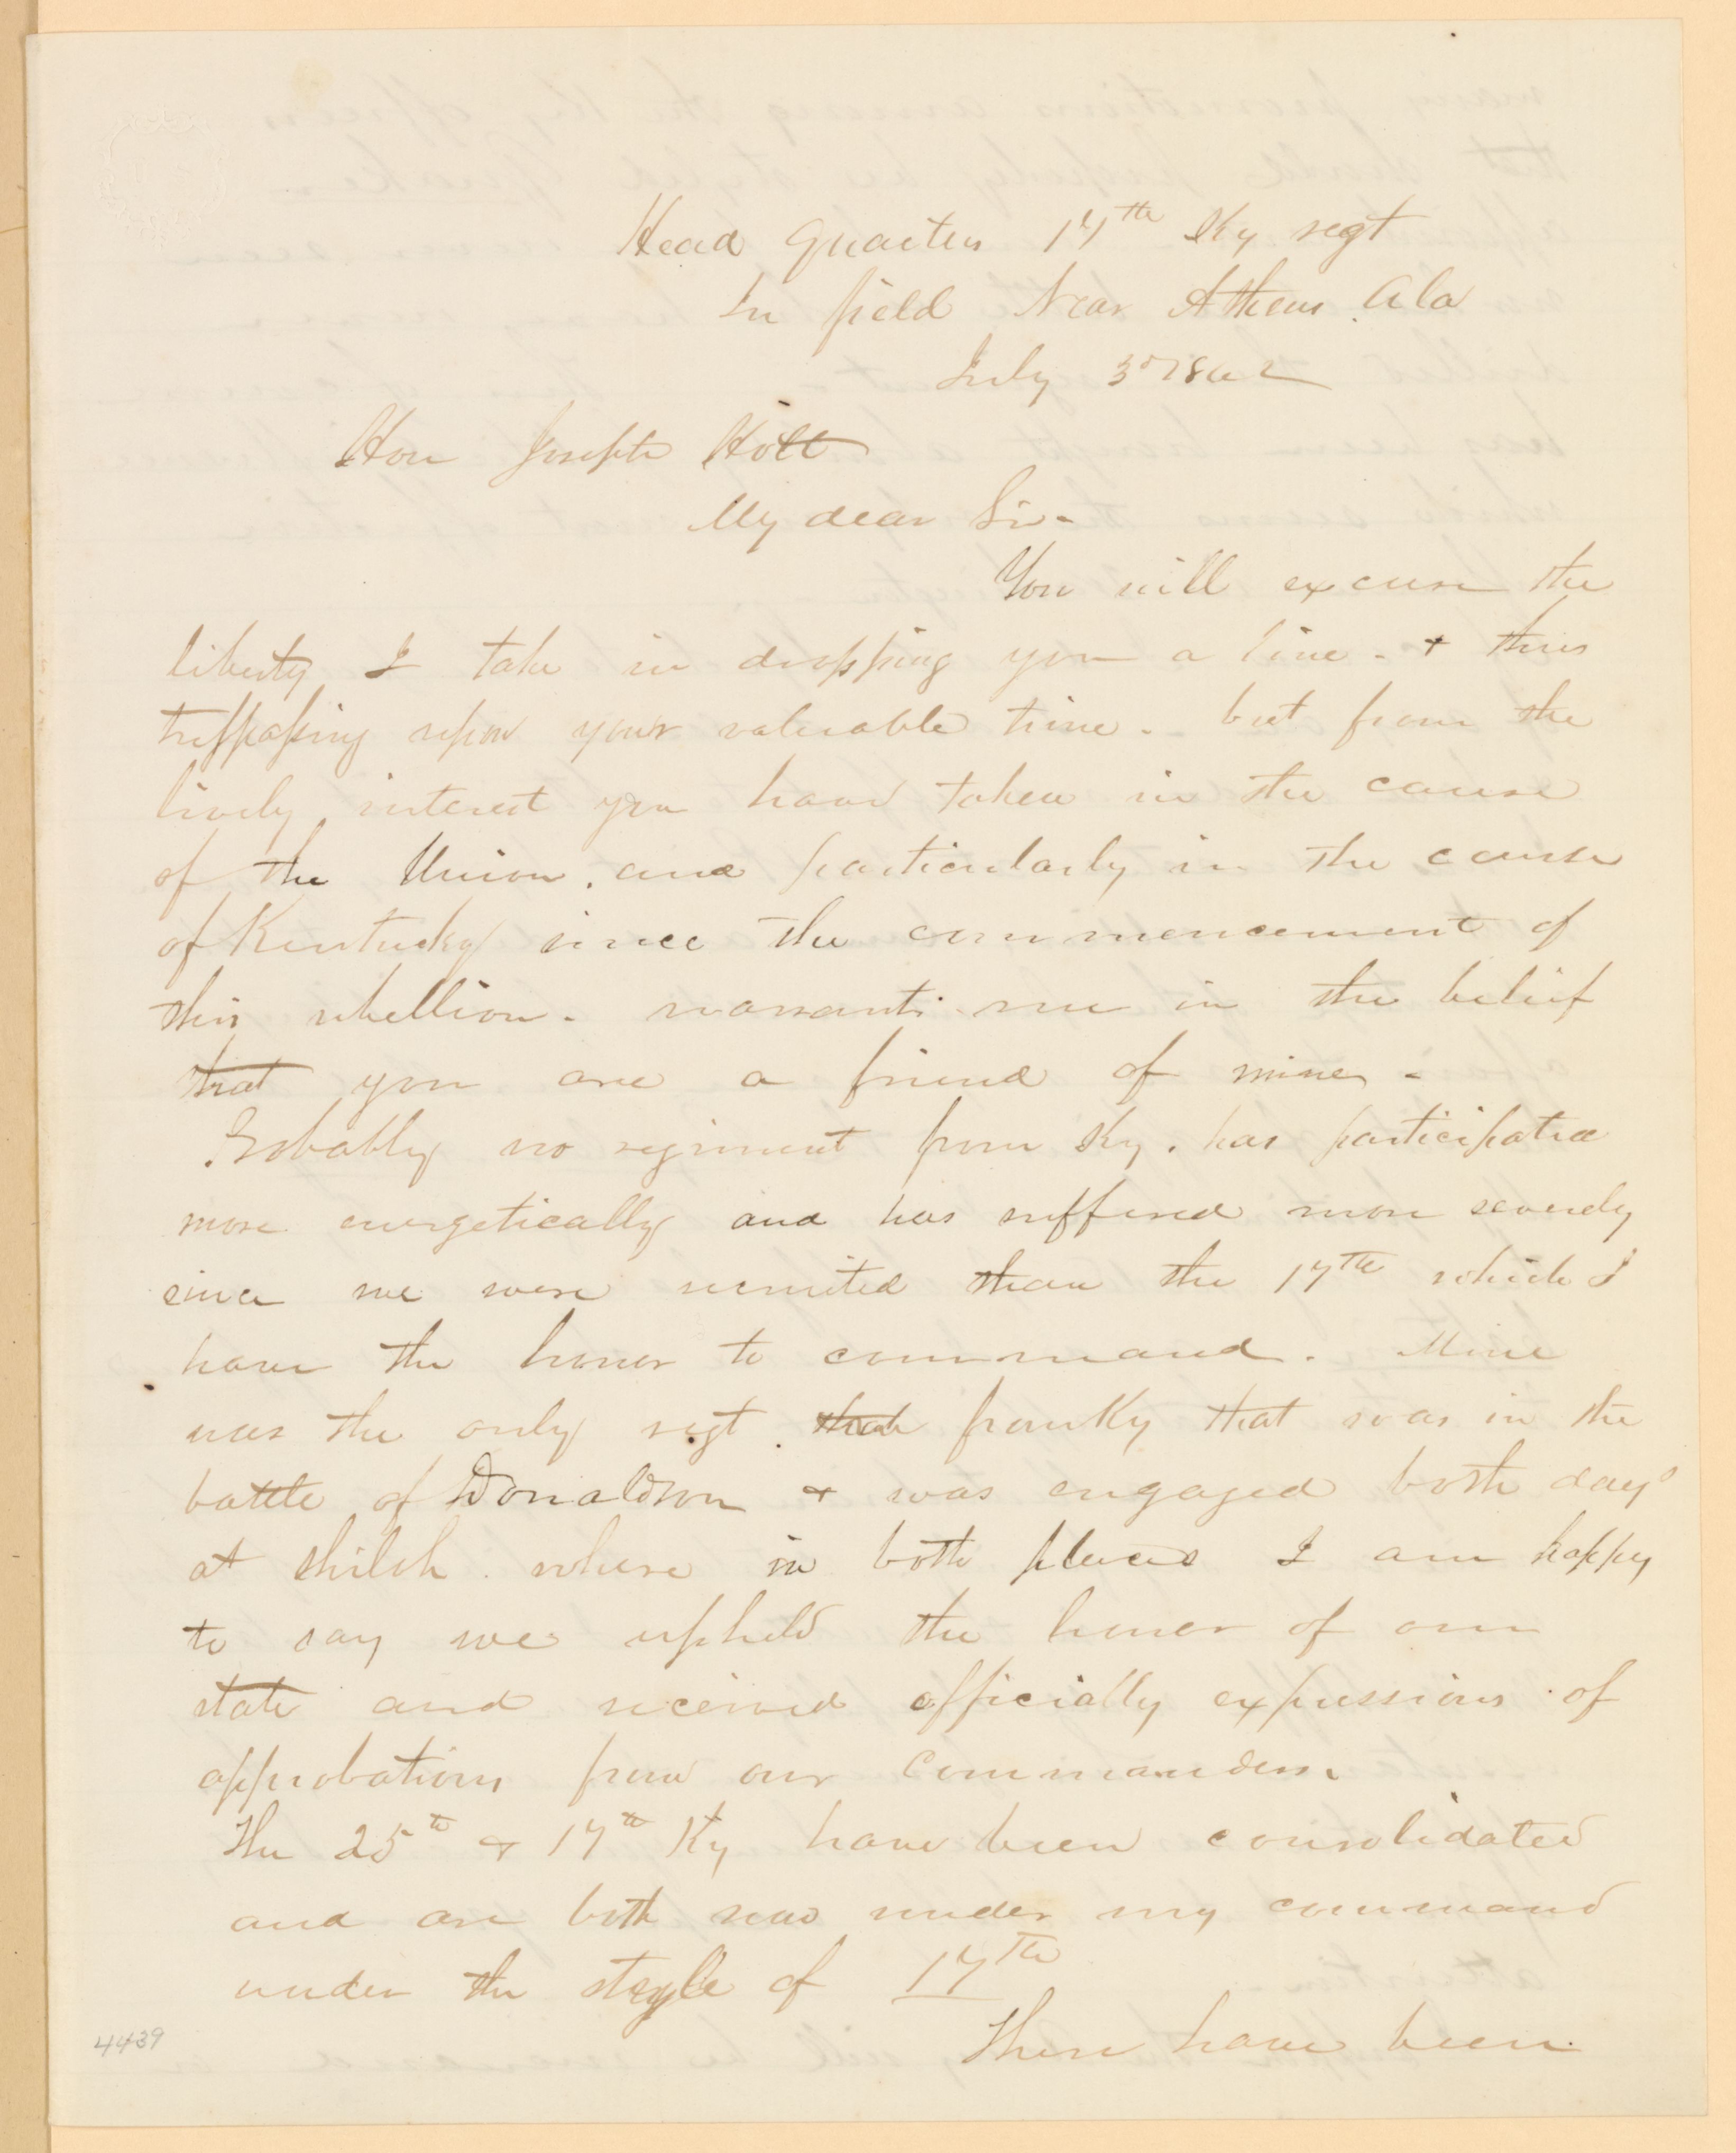 Head Quarters 17th Ky regt
In field Near Athens Ala
July 3d 1862
Hon Joseph Holt
My dear Sir -
You will excuse the
liberty I take in dropping you a line - & thus
tresspassing upon your valuable time - but from the
lively interest you have taken in the cause
of the Union, and particularly in the cause
of Kentucky since the commencement of
this rebellion - warrants me in the belief
that you are a friend of mine -
Probably no regiment from Ky. has participated
more energetically and has suffered more severely
since we were recruited than the 17th which I
have the honor to command. Mine
was the only regt. that from Ky that was in the
battle of Donaldson & was engaged both days
at Shiloh. where in both places I am happy
to say we upheld the honor of our
state and received officially expressions of
approbations from our commanders.
The 25th & 17th Ky have been consolidated
and are both now under my command
under the style of 17th
There have been
4439